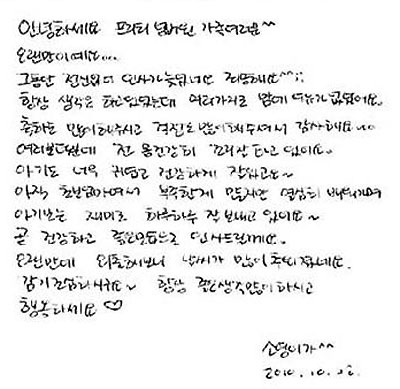 안녕하세요 프리티 넘버원 가족여러분^^
오랜만이에요...
그동안 전 인사가 늦었네요 죄송해요^^;;
항상 생각은 하고있었는데 여러가지로 맘에 여유가 없었어요.
축하도 많이해주시고 걱정도 많이해주셔서 감사해요...
여러분덕분에 전 건강히 잘 있어요.
아기도 너무 귀엽고 건강하게 잘있고요~
아직 초보엄마여서 부족한게 많지만 열심히 배워가며
아기보는 재미로 하루하루 잘 보내고 있어요~
곧 건강하고 좋은모습으로 인사드릴께요.
오랜만에 외출해보니 날씨가 많이 추워졌네요.
감기조심하시구요~ 항상 좋은생각많이하시고
행복하세요 ♡
소영이가^^
2010. 10.